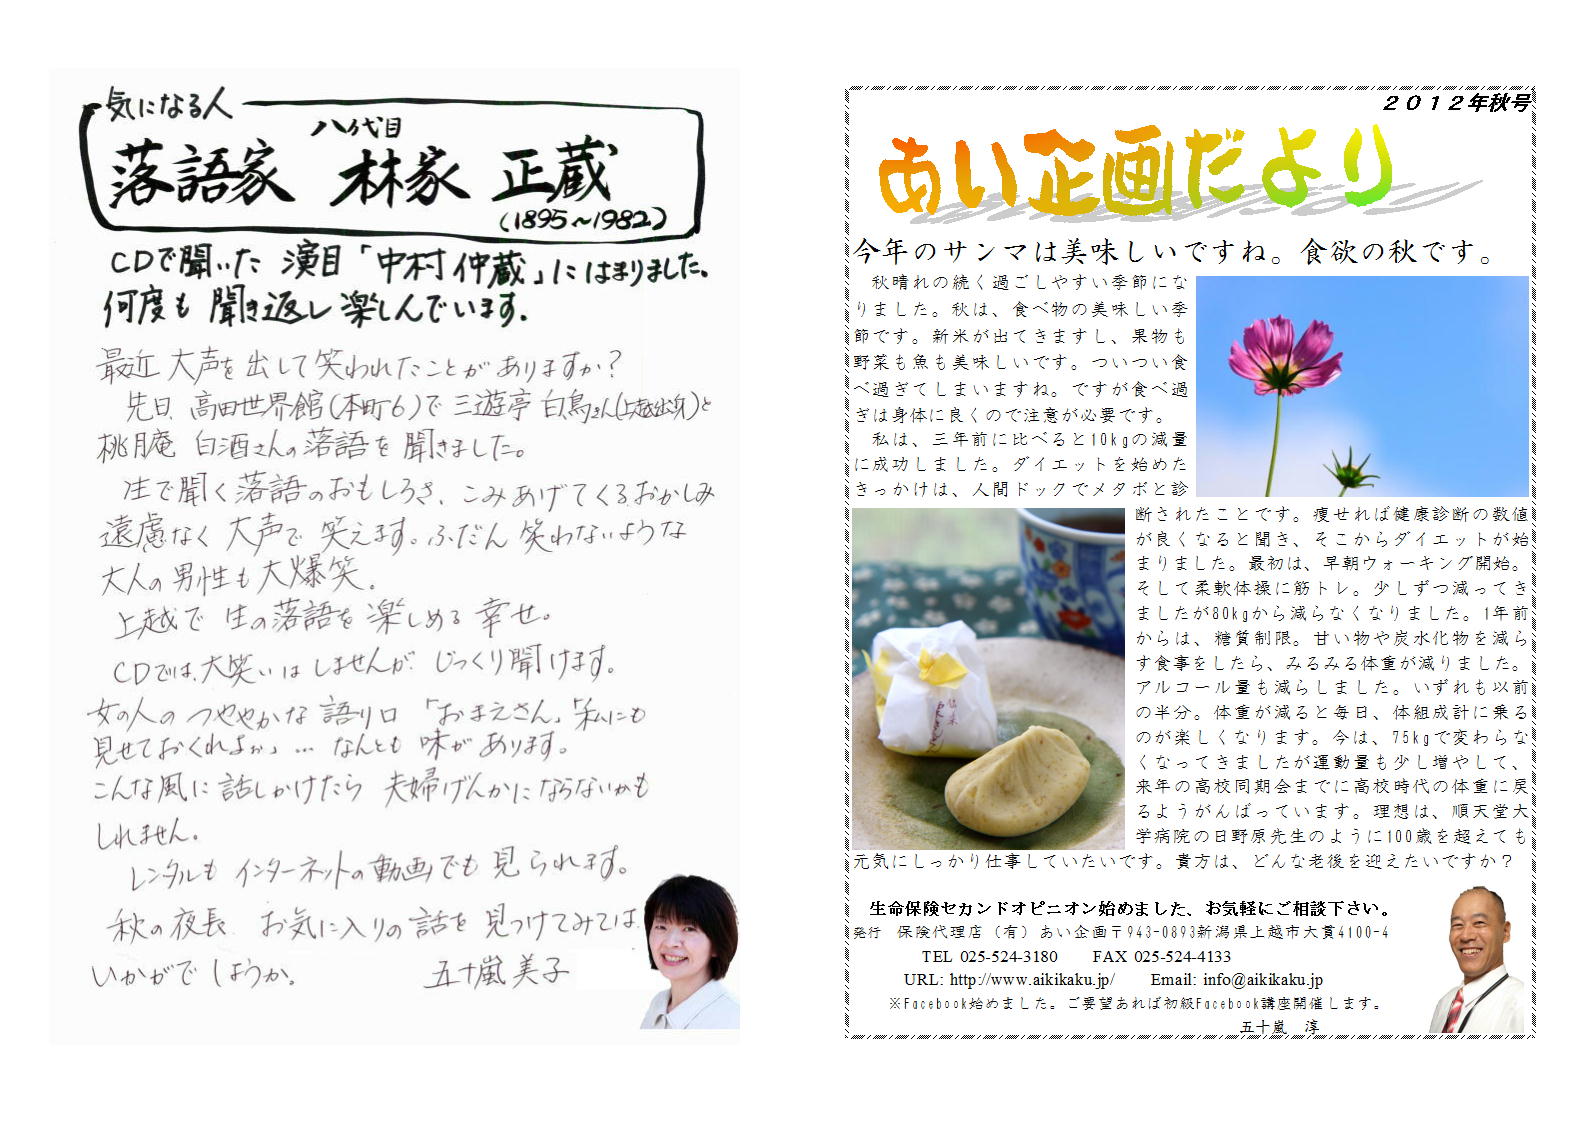 気になる人
八代目
落語家 林家 正蔵
(1895〜1982)
CDで聞いた 演目「中村仲蔵」にはまりました。
何度も 聞き返し楽しんでいます。
最近 大声を出して笑われたことがありますか?
先日、高田世界館(本町6)で 三遊亭 白鳥さん(上越出身)と
桃月庵 白酒さんの落語を 聞きました。
生で聞く落語のおもしろさ、こみあげてくるおかしみ
遠慮なく 大声で 笑えます。ふだん 笑わないような
大人の男性も大爆笑。
上越で 生の落語を楽しめる 幸せ。
CDでは、大笑いは しませんが、じっくり聞けます。
女の人の つややかな 語り口 「おまえさん」「私にも
見せておくれよぉ」… なんとも 味が あります。
こんな風に 話しかけたら 夫婦げんかにならないかも
しれません。
レンタルも インターネットの動画でも 見られます。
秋の夜長、お気に入りの話を 見つけてみては、
いかがで しょうか。 五十嵐 美子
２０１２年秋号
あい企画だより
今年のサンマは美味しいですね。食欲の秋です。
秋晴れの続く過ごしやすい季節にな
りました。秋は、食べ物の美味しい季
節です。新米が出てきますし、果物も
野菜も魚も美味しいです。ついつい食
べ過ぎてしまいますね。ですが食べ過
ぎは身体に良くので注意が必要です。
私は、三年前に比べると10kgの減量
に成功しました。ダイエットを始めた
きっかけは、人間ドックでメタボと診
断されたことです。痩せれば健康診断の数値
が良くなると聞き、そこからダイエットが始
まりました。最初は、早朝ウォーキング開始。
そして柔軟体操に筋トレ。少しずつ減ってき
ましたが80kgから減らなくなりました。1年前
からは、糖質制限。甘い物や炭水化物を減ら
す食事をしたら、みるみる体重が減りました。
アルコール量も減らしました。いずれも以前
の半分。体重が減ると毎日、体組成計に乗る
のが楽しくなります。今は、75kgで変わらな
くなってきましたが運動量も少し増やして、
来年の高校同期会までに高校時代の体重に戻
るようがんばっています。理想は、順天堂大
学病院の日野原先生のように100歳を超えても
元気にしっかり仕事していたいです。貴方は、どんな老後を迎えたいですか？
生命保険セカンドオピニオン始めました、お気軽にご相談下さい。
発行 保険代理店（有）あい企画〒943-0893新潟県上越市大貫4100-4
TEL 025-524-3180 FAX 025-524-4133
URL: http://www.aikikaku.jp/ Email: info@aikikaku.jp
※Facebook始めました。ご要望あれば初級Facebook講座開催します。
五十嵐 淳